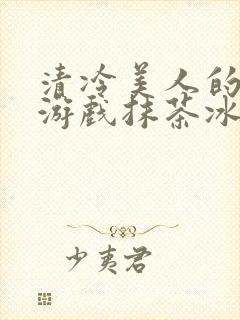 清冷美人的
游戏抹茶冰
少夷君